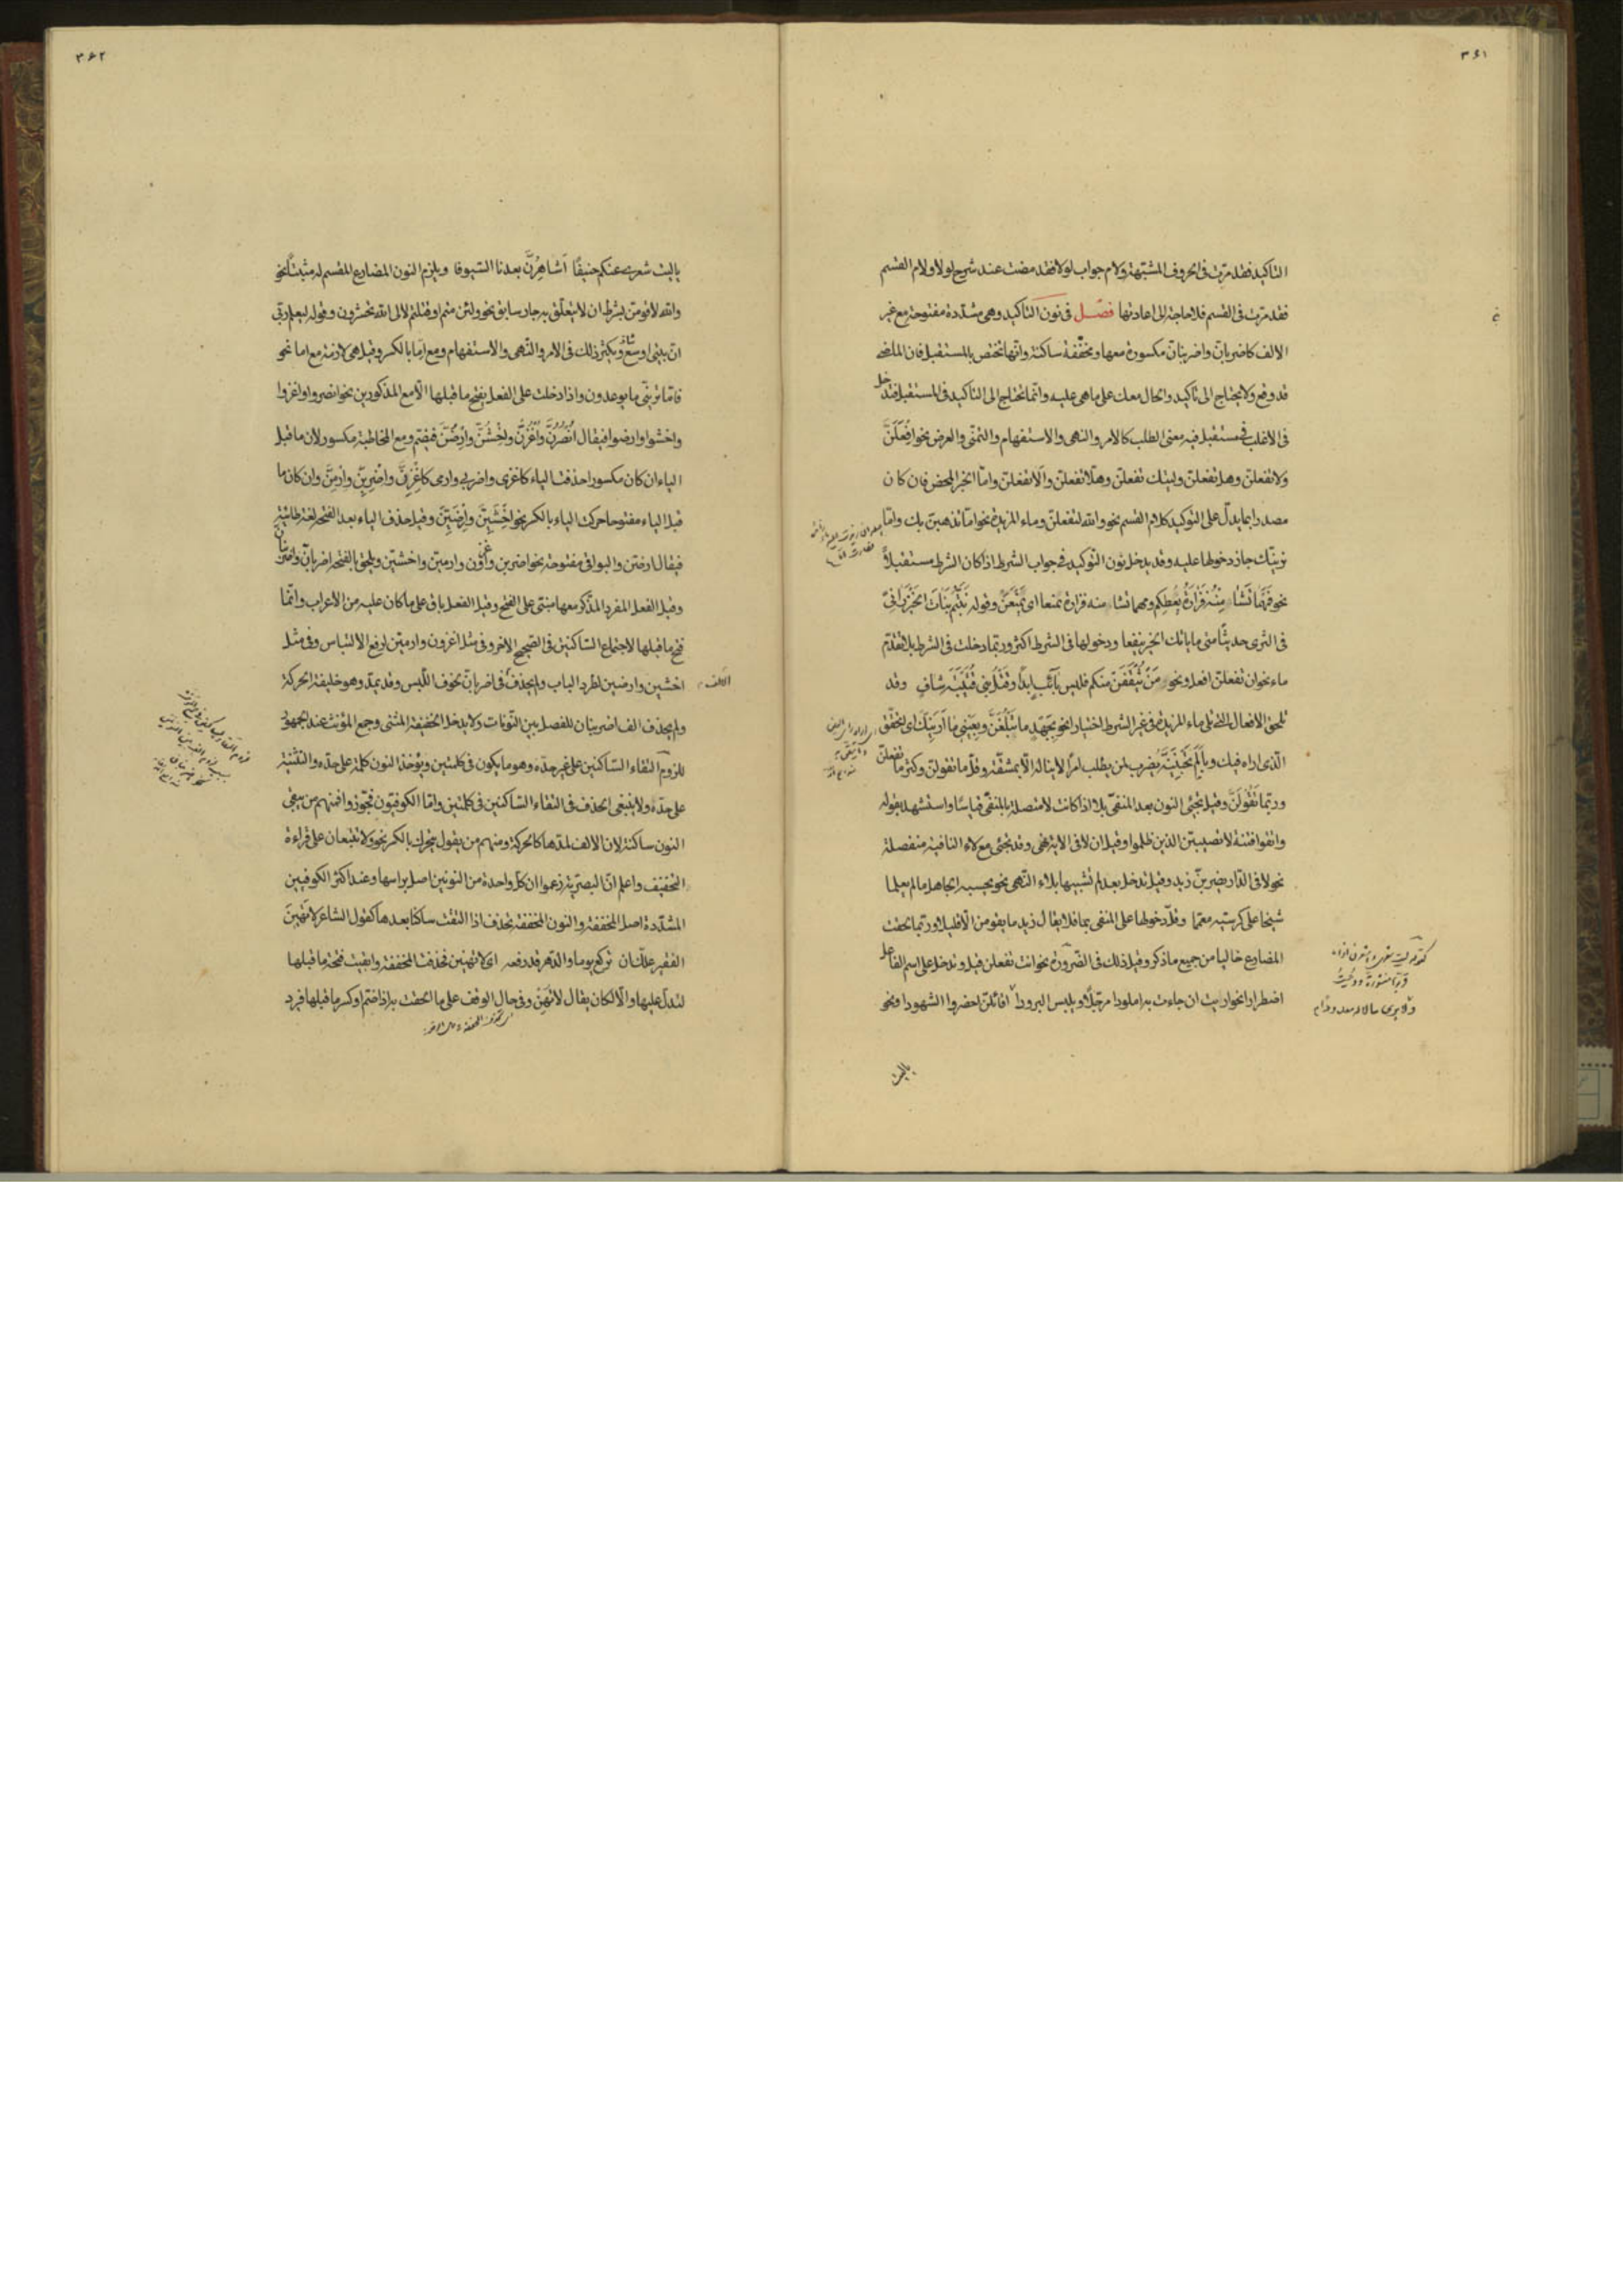 ٣۶١
التاكيد فقد مرّت فى الحروف المشبّهة ولام جواب لولا فقد مضت عند شرح لولا ولام القسم
فقد مرّت فى القسم فلا حاجة الى اعادتها فصل فى نون التاكيد وهى مشدّدة مفتوحة مع غير
الالف كاضربانّ واضربنانّ مكسورة معها ومخفّفة ساكنة وانّها تختص بالمستقبل فان الماضى
قد وقع ولا يحتاج الى تاكيد والحال معك على ما هى عليه وانّما تحتاج الى التاكيد فى المستقبل فتدخل
فى الاغلب فى مستقبل فيه معنى الطلب كالامر والنهى والاستفهام والتمنّى والعرض نحو افعلنّ
ولا تفعلنّ وهل تفعلنّ وليتك تفعلنّ وهلّا تفعلنّ والا تفعلنّ وامّا الخبر المحض فان كان
مصدرا بما يدلّ على التوكيد كلام القسم نحو والله لتفعلنّ وماء المزيدة نحو امّا تذهبنّ بك وامّا
نرينّك جاز دخولها عليه وقد يدخل نون التوكيد فى جواب الشرط اذا كان الشرط مستقبلاً
نحو فَمَهما تَشَا مِنْهُ فَزَارَةُ يُعْطِكم ومهما تشا منه فزارة تمنعا اى تَمْنَعَنْ وقوله نَبَتُّم نَبَاتَ الخَيْزُرَانِىّ
فى الثرى حديثًا متى ما ياتك الخير ينفعا ودخولها فى الشرط اكثر وربّما دخلت فى الشرط بلا تقدّم
ماء نحو ان تفعلنّ افعل ونحو مَنْ تُثْقَفَنْ منكم فليس بآئب ابداً وقتل بنى قُتَيْبَةَ شافٍ وقد
تلحق الافعال التى تلى ماء المزيدة فى غير الشرط اختيارا نحو بجَهْدٍ ما تَبْلُغَنَّ وبِعَيْنٍ ما اَرَيَنَّكَ اى لتحقّق
الّذى اراه فيك وبِاَلَمٍ تُخْتَنِنَّهْ يُضرب لمن يطلب امراً لا يناله الّا بمشقّة وقلّ ما تقولنّ وكثر ما تفعلنّ
وربّما تَقُولَنَّ وقيل يجئى النون بعد المنفىّ بلا اذا كانت لا متصلة بالمنفىّ قياسًا واستشهد بقوله
واتقوا فتنة لا تصيبنّ الذين ظلموا وقيل ان لا فى الاية نهى وقد تجئى مع لاء النافية منفصلة
نحو لا فى الدّار يضربنّ زيد وقيل تدخل بعد لم تشبيها بلاء النّهى نحو يحسبه الجاهل ما لم يعلما
شيخا على كرسيّه معمّما وقلّ دخولها على المنفى بما فلا يقال زيد ما يقومنّ الّا قليلا وربّما لحقت
المضارع خاليا من جميع ما ذكر وقيل ذلك فى الضّرورة نحو انت تفعلن قيل وتدخل على اسم الفاعل
اضطرارا نحو اريت ان جاءت به املودا مرجّلاً ويلبس البرودا اقائلنّ احضروا الشهودا ونحو
ياليت
٣۶٢
ياليت شعرى عنكم حنيفًا اَشاهِرُنَّ بعدنا السّيوفا ويلزم النون المضارع المقسم له مثبتاً نحو
والله لاقومنّ بشرط ان لا يتعلّق به جار سابق نحو ولئن متم او قتلتم لالى الله تحشرون وقوله ليعلم ربّى
انّ بيتى اوسع ويكثر ذلك فى الامر والنّهى والاستفهام ومع امّا بالكسر وقيل هى لازمة مع اما نحو
فامّا ترينّى ما يوعدون واذا دخلت على الفعل يفتح ما قبلها الّا مع المذكورين نحو انصروا واغزوا
واخشوا وارضوا فيقال اُنْصُرُنَّ واُغْزُنَّ واِخْشُنَّ واِرْضُنَّ فيضم ومع المخاطبة مكسور لان ما قبل
الياء ان كان مكسورا حذفت الياء كاغزى واضربى وارمى كاغْزِنَّ واضْرِبِنَّ وارْمِنَّ وان كان ما
قبل الياء مفتوحا حركت الياء بالكسر نحو اخْشَيِنَّ وارْضَيِنَّ وقيل حذف الياء بعد الفتحه لغة طائيّة
فيقال ارضنّ والبواقى مفتوحة نحو اضربن واغزون وارمينّ واخشينّ ويلحق بالفتحه اضربانّ واضربنانّ
وقيل الفعل المفرد المذكّر معها مبنّى على الفتح وقيل الفعل باق على ما كان عليه من الاعراب وانّما
فتح ما قبلها لاجتماع السّاكنين فى الصحيح الاخر وفى مثل اغزون وارمينّ لرفع الالتباس وفى مثل
اخشين وارضين لطرد الباب ولم يحذف فى اضربانّ بخوف اللّبس وقد يمدّ وهو خليفة الحركة
الالف
ولم يحذف الف اضربنان للفصل بين النّونات ولا يدخل الخفيفة المثنى وجمع المؤنث عند الجمهور
للزوم التقاء السّاكنين على غير حدّه وهو ما يكون فى كلمتين ويؤخذ النون كلمة على حدّه والتثنية
على حدّه ولا ينبغى الحذف فى التقاء السّاكنين فى كلمتين وامّا الكوفيّون فجّوزوا فمنهم من يبقى
النون ساكنة لان الالف لمدّها كالحركة ومنهم من يقول يتحرك بالكسر نحو ولا تتبعان على قراءة
التخفيف واعلم انّ البصريّة زعموا ان كل واحدة من النونين اصل براسها وعند اكثر الكوفيين
المشدّدة اصل المخففة والنون المخففة تحذف اذا التقت ساكنا بعدها كقول الشاعر لا تُهينَ
الفقير علّك ان تركع يوما والدّهر قد رفعه اى لا تهينن فحذفت المخففة وابقيت فتحة ما قبلها
لتدلّ عليها والّا لكان يقال لا تُهِنْ وفى حال الوقف على ما الحقت به اذا ضمّ او كسر ما قبلها فيرد